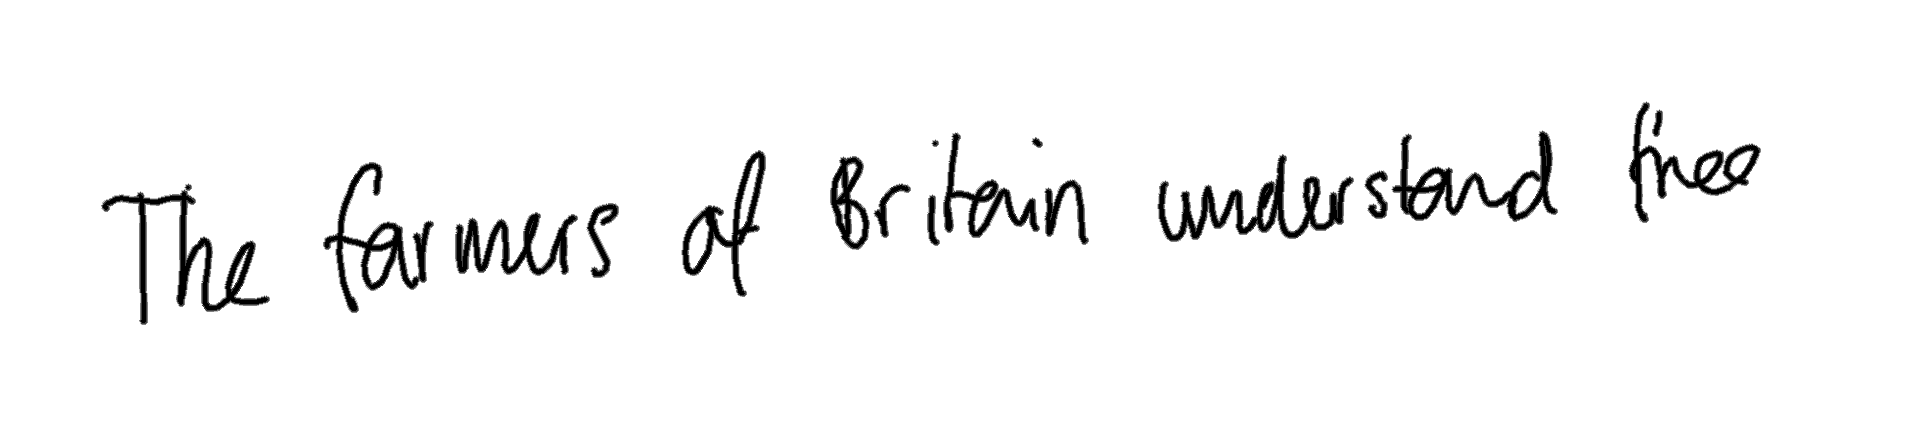 The farmers of Britain understand free